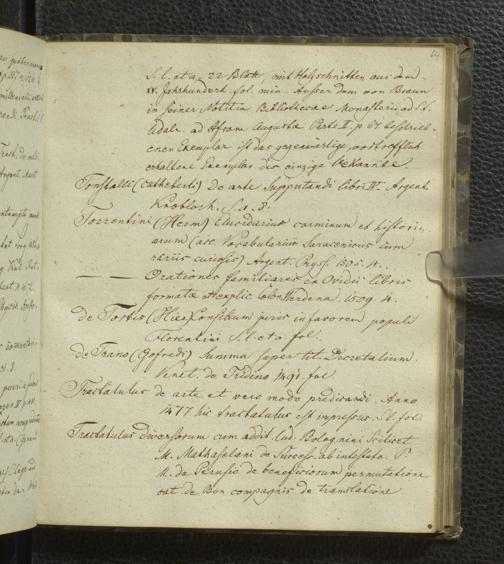 64
S. l. et a. 22 Blatt, mit Holzschnitten aus dem
XV. Jahrhundert. fol. min. Ausser dem von Braun
in seiner Notitia Bibliothecae Monasterii ad SS.
Udalr. ad Afram Augusta Parte II. p. 67 beschrieb-
enen Exemplar ist das gegenwärtige, vortrefflich
erhaltene Exemplar das einzige bekannte
Tonstalli (Cutheberti) De arte Supputandi libri IV. Argent.
Knobloch. S. a. 8.
Torrentini (Herm) Elucidarius carminum et histori-
arum (acc. Vocabularius Saracenicus cum
variis curiosis) Argent. 1505. 4.
Orationes familiares ex Ovidii libris
formatae 1509 4.
de Tortis (Hier.) Consilium juris in favorem populi
Florentini S. l. et a. fol.
de Trano (Gofredi) Summa super tit. Decretalium.
Venet. de Tridino 1491. fol.
Tractatulus de arte et vero modo predicandi. Anno
1477 hic tractatulus est impressus. fol.
Tractatulus diversorum cum addit. Lud. Bolognini Scilicet
M. Mathaselani de Success. ab intestato. P
M. de Perusio de beneficiorum permutatione
de Bon compagnis de translatione